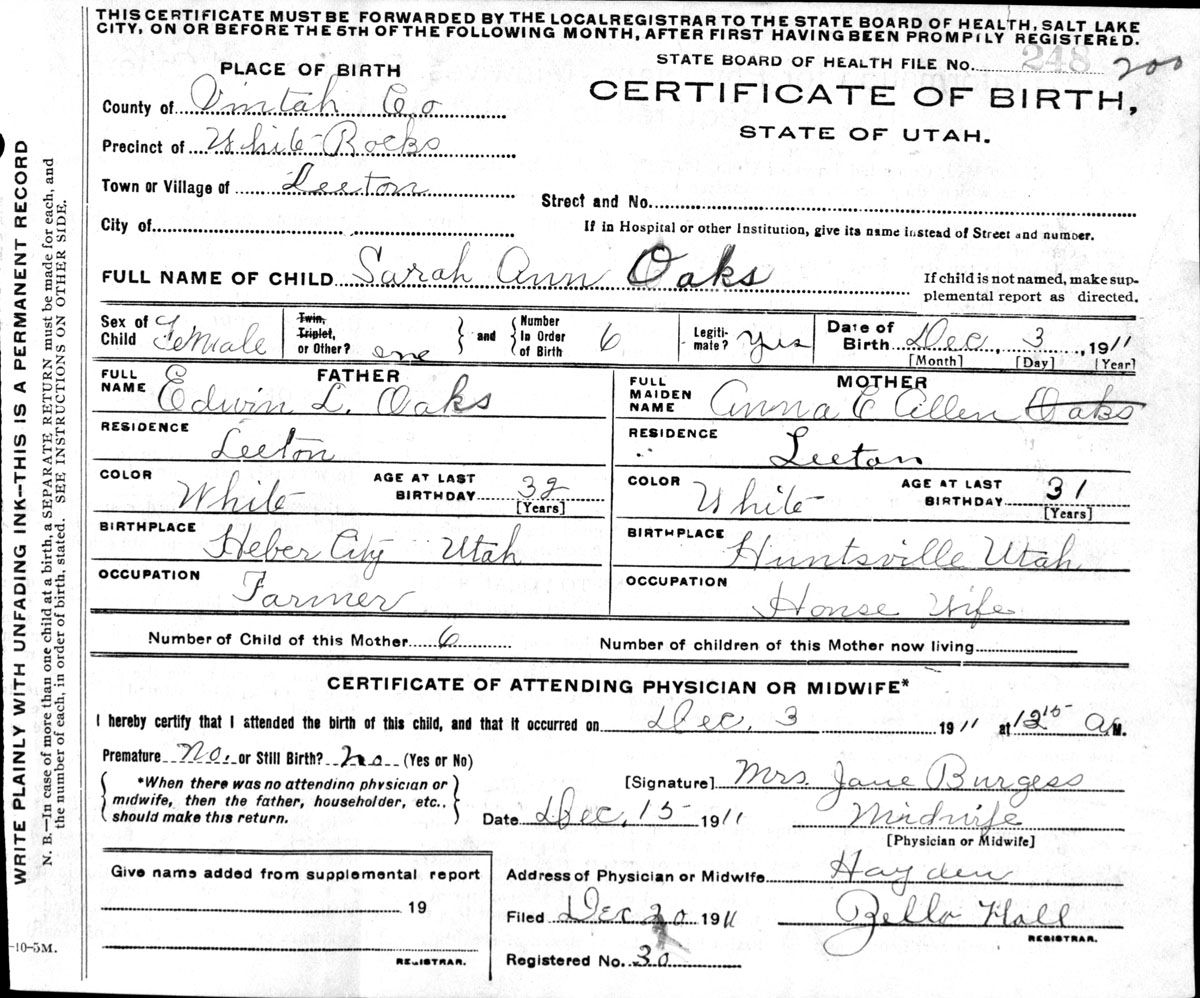 THIS CERTIFICATE MUST BE FORWARDED BY THE LOCAL REGISTRAR TO THE STATE BOARD OF HEALTH, SALT LAKE
CITY, ON OR BEFORE THE 5TH OF THE FOLLOWING MONTH, AFTER FIRST HAVING BEEN PROMPTLY REGISTERED.
STATE BOARD OF HEALTH FILE No. 248 200
PLACE OF BIRTH
CERTIFICATE OF BIRTH,
STATE OF UTAH.
County of Uintah Co
Precinct of White Rocks
Town or Village of Leeton
Street and No.
City of
If in Hospital or other Institution, give its name instead of Street and number.
FULL NAME OF CHILD Sarah Ann Oaks
If child is not named, make sup-
plemental report as directed.
Sex of Child Female
Twin, Triplet, or Other? one and Number In Order of Birth 6
Legiti-mate? Yes
Date of Birth Dec, 3, 1911
[Month] [Day] [Year]
FATHER
FULL NAME Edwin L. Oaks
RESIDENCE Leeton
COLOR White AGE AT LAST BIRTHDAY 32
[Years]
BIRTHPLACE Heber City Utah
OCCUPATION Farmer
MOTHER
FULL MAIDEN NAME Anna E Allen Oaks
RESIDENCE Leeton
COLOR White AGE AT LAST BIRTHDAY 31
[Years]
BIRTHPLACE Huntsville Utah
OCCUPATION House Wife
Number of Child of this Mother 6 Number of children of this Mother now living
CERTIFICATE OF ATTENDING PHYSICIAN OR MIDWIFE*
I hereby certify that I attended the birth of this child, and that it occurred on Dec, 3 1911 at 12 15 A M.
Premature No. or Still Birth? No (Yes or No)
*When there was no attending physician or
midwife, then the father, householder, etc.,
should make this return.
[Signature] Mrs. Jane Burgess
Date Dec, 15 1911 Midwife
[Physician or Midwife]
Give name added from supplemental report
19
REGISTRAR.
Address of Physician or Midwife Hayden
Filed Dec 20 1911 Bello Hall
REGISTRAR.
Registered No. 30
WRITE PLAINLY WITH UNFADING INK—THIS IS A PERMANENT RECORD
N. B.—In case of more than one child at a birth, a SEPARATE RETURN must be made for each, and
the number of each, in order of birth, stated. SEE INSTRUCTIONS ON OTHER SIDE.
-10-5M.